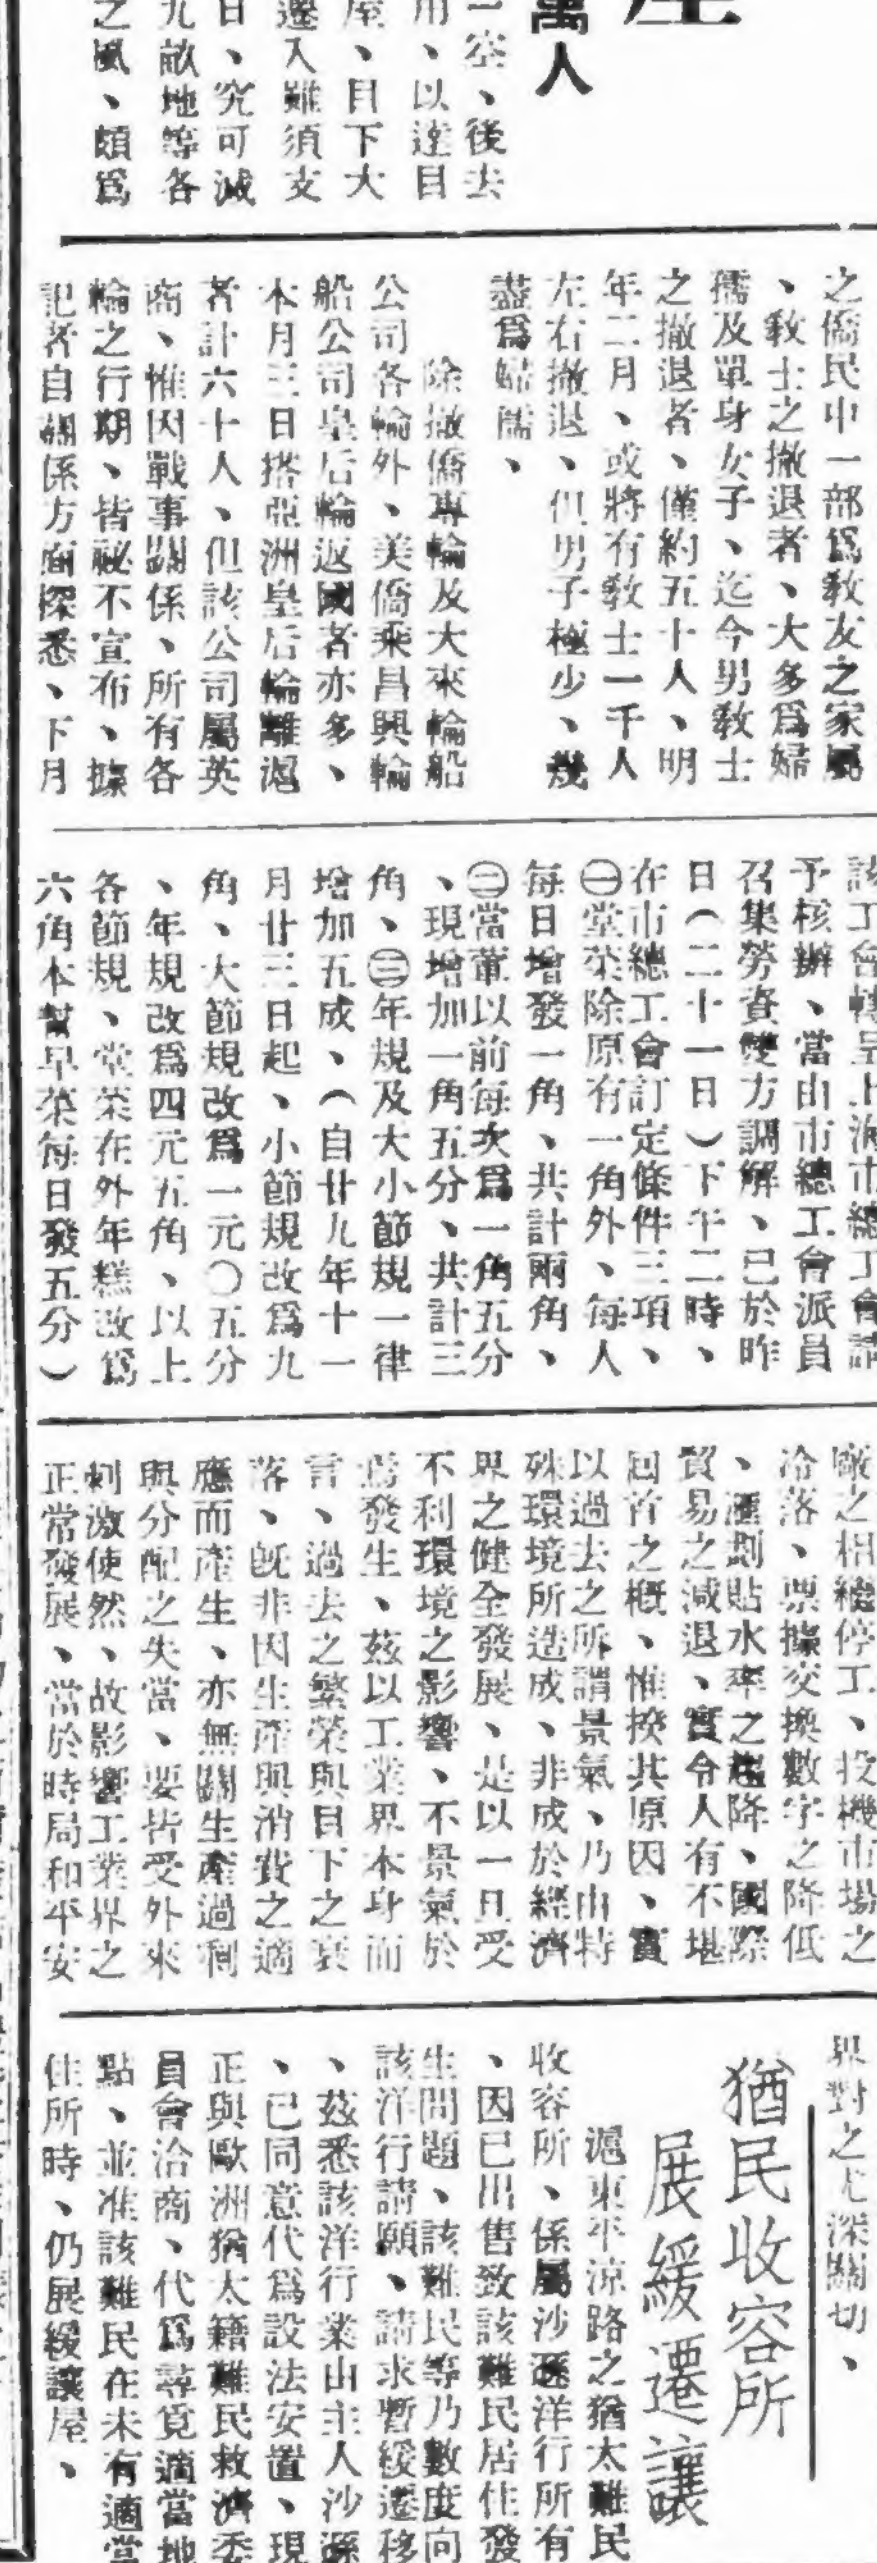 萬人
一空、後去
用、以達目
屋、目下大
遷入難須支
日、究可減
九畝地等各
之風、頗爲
之僑民中一部爲敎友之家屬
、敎士之撤退者、大多爲婦
孺及單身女子、迄今男敎士
之撤退者、僅約五十人、明
年二月、或將有敎士一千人
左右撤退、但男子極少、幾
盡爲婦孺、
除撤僑專輪及大來輪船
公司各輪外、美僑乘昌興輪
船公司皇后輪返國者亦多、
本月三日搭亞洲皇后輪離滬
者計六十人、但該公司屬英
商、惟因戰事關係、所有各
輪之行期、皆祕不宣布、據
記者自關係方面探悉、下月
該工會轉呈上海市總工會請
予核辦、當由市總工會派員
召集勞資雙方調解、已於昨
日（二十一日）下午二時、
在市總工會訂定條件三項、
㊀堂菜除原有一角外、每人
每日增發一角、共計兩角、
㊁當葷以前每次爲一角五分
、現增加一角五分、共計三
角、㊂年規及大小節規一律
增加五成、（自廿九年十一
月廿三日起、小節規改爲九
角、大節規改爲一元〇五分
、年規改爲四元五角、以上
各節規、堂菜在外年糕改爲
六角本幫早菜每日發五分）
廠之相繼停工、投機市場之
冷落、票據交換數字之降低
、滙劃貼水率之趨降、國際
貿易之減退、實令人有不堪
回首之槪、惟揆其原因、實
以過去之所謂景氣、乃由特
殊環境所造成、非成於經濟
界之健全發展、是以一旦受
不利環境之影響、不景氣於
焉發生、茲以工業界本身而
言、過去之繁榮與目下之衰
落、旣非因生產與消費之適
應而產生、亦無關生產過剩
與分配之失當、要皆受外來
刺激使然、故影響工業界之
正常發展、當於時局和平安
界對之尤深關切、
猶民收容所
展緩遷讓
滬東平涼路之猶太難民
收容所、係屬沙遜洋行所有
、因已出售致該難民居住發
生問題、該難民等乃數度向
該洋行請願、請求暫緩遷移
、茲悉該洋行業山主人沙遜
、已同意代爲設法安置、現
正與歐洲猶太籍難民救濟委
員會洽商、代爲尋覓適當地
點、並准該難民在未有適當
住所時、仍展緩讓屋、